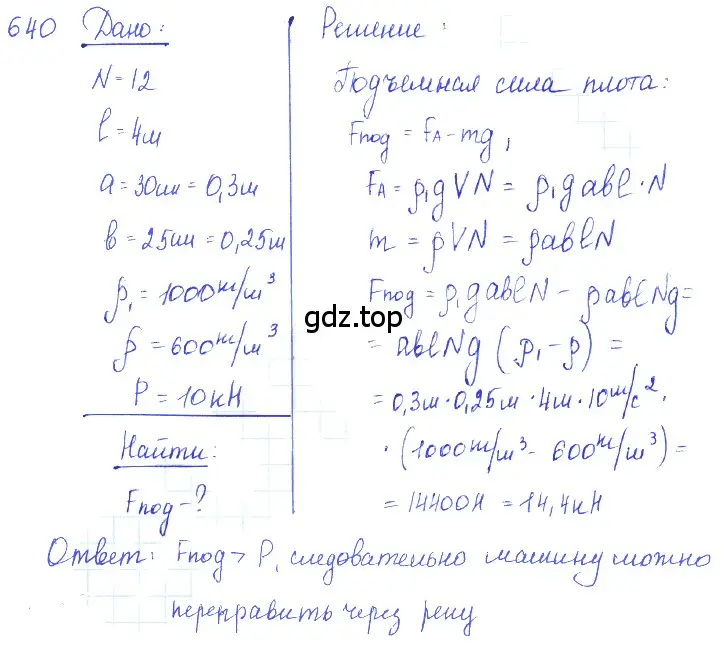 640 Дано:
N = 12
l = 4м
a = 30см = 0,3м
в = 25см = 0,25м
ρ₁ = 1000 кг/м³
ρ = 600 кг/м³
P = 10кН
Найти:
Fпод - ?
Решение:
Подъемная сила плота:
Fпод = FA - mg,
FA = ρ₁gVN = ρ₁gaвl·N
m = ρVN = ρaвlN
Fпод = ρ₁gaвlN - ρaвlNg =
= aвlNg (ρ₁ - ρ) =
= 0,3м · 0,25м · 4м · 10м/с² ·
· (1000кг/м³ - 600кг/м³) =
= 14400Н = 14,4кН
gdz.top
Ответ: Fпод > P, следовательно машину можно
переправить через реку